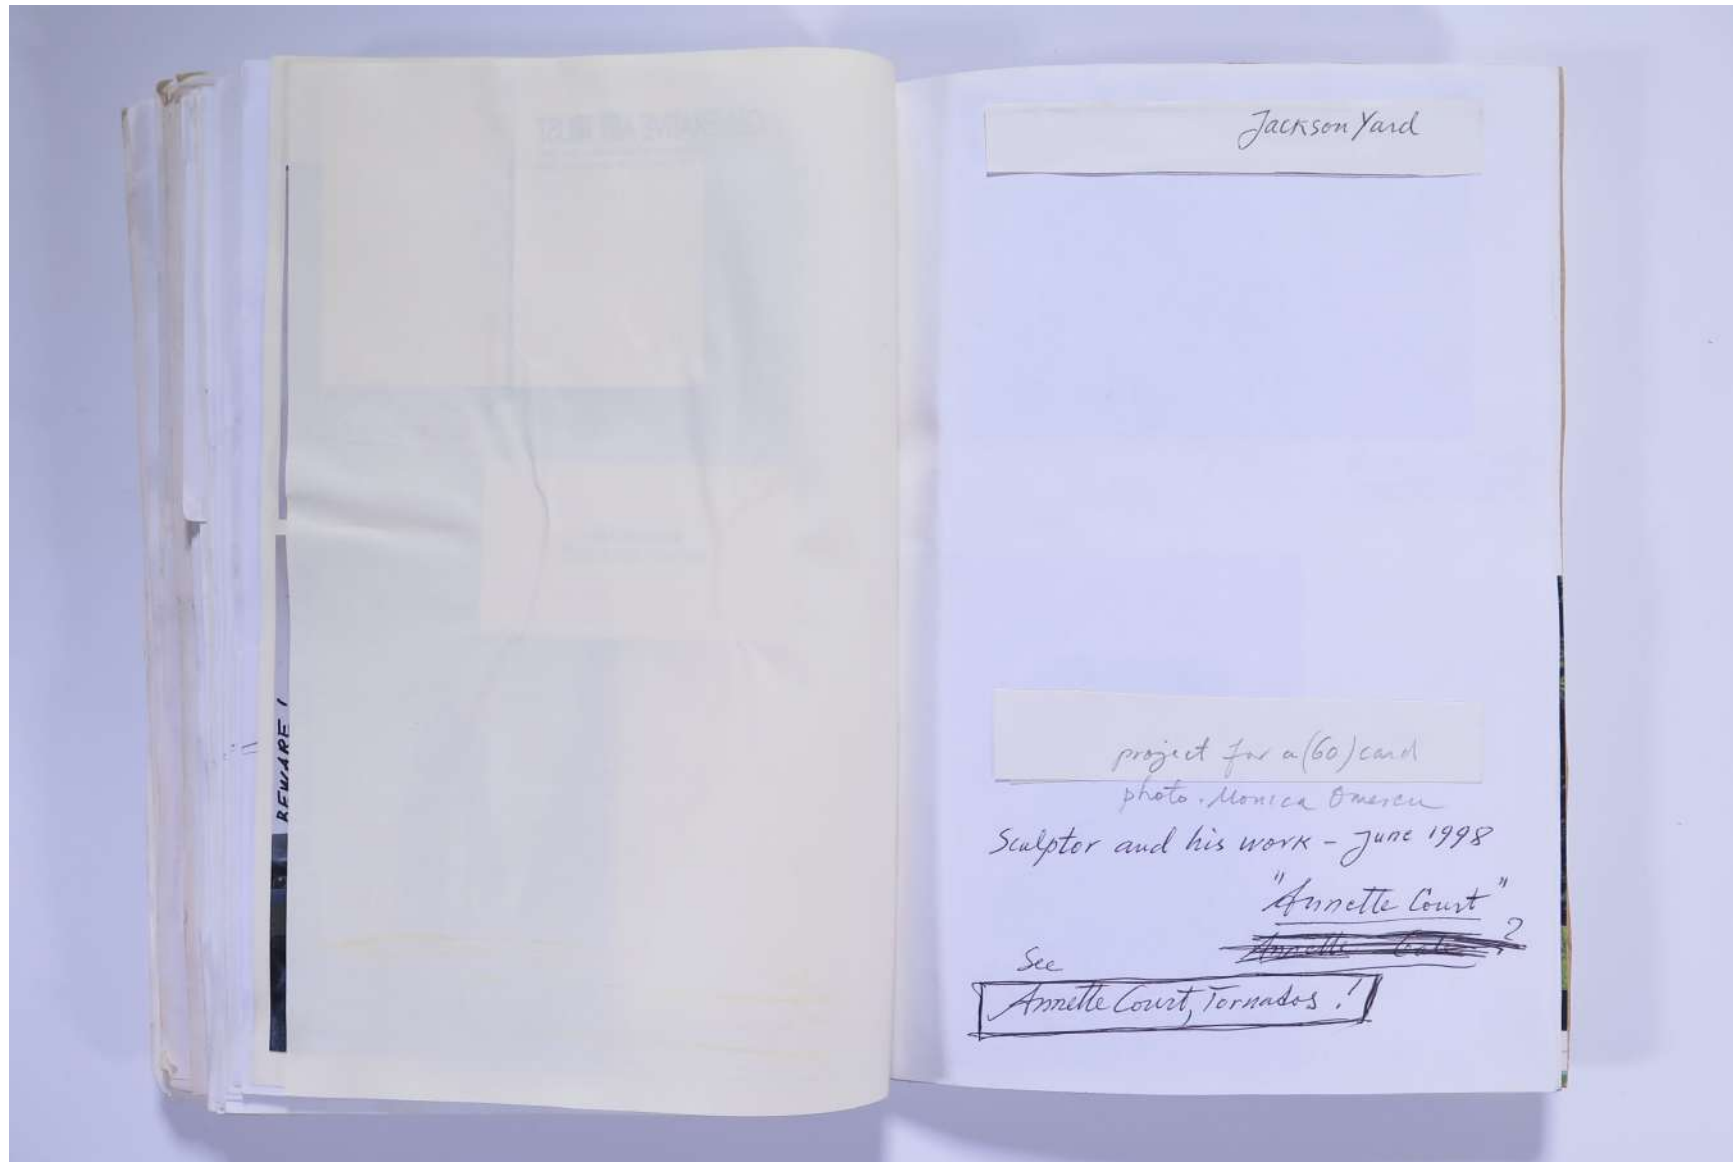 BEWARE!
Jackson Yard
project for a (Go) card
photo. Monica Omescu
Sculptor and his work - June 1998
"Annette Court"
Annette ?
See
Annette Court, Tornados!